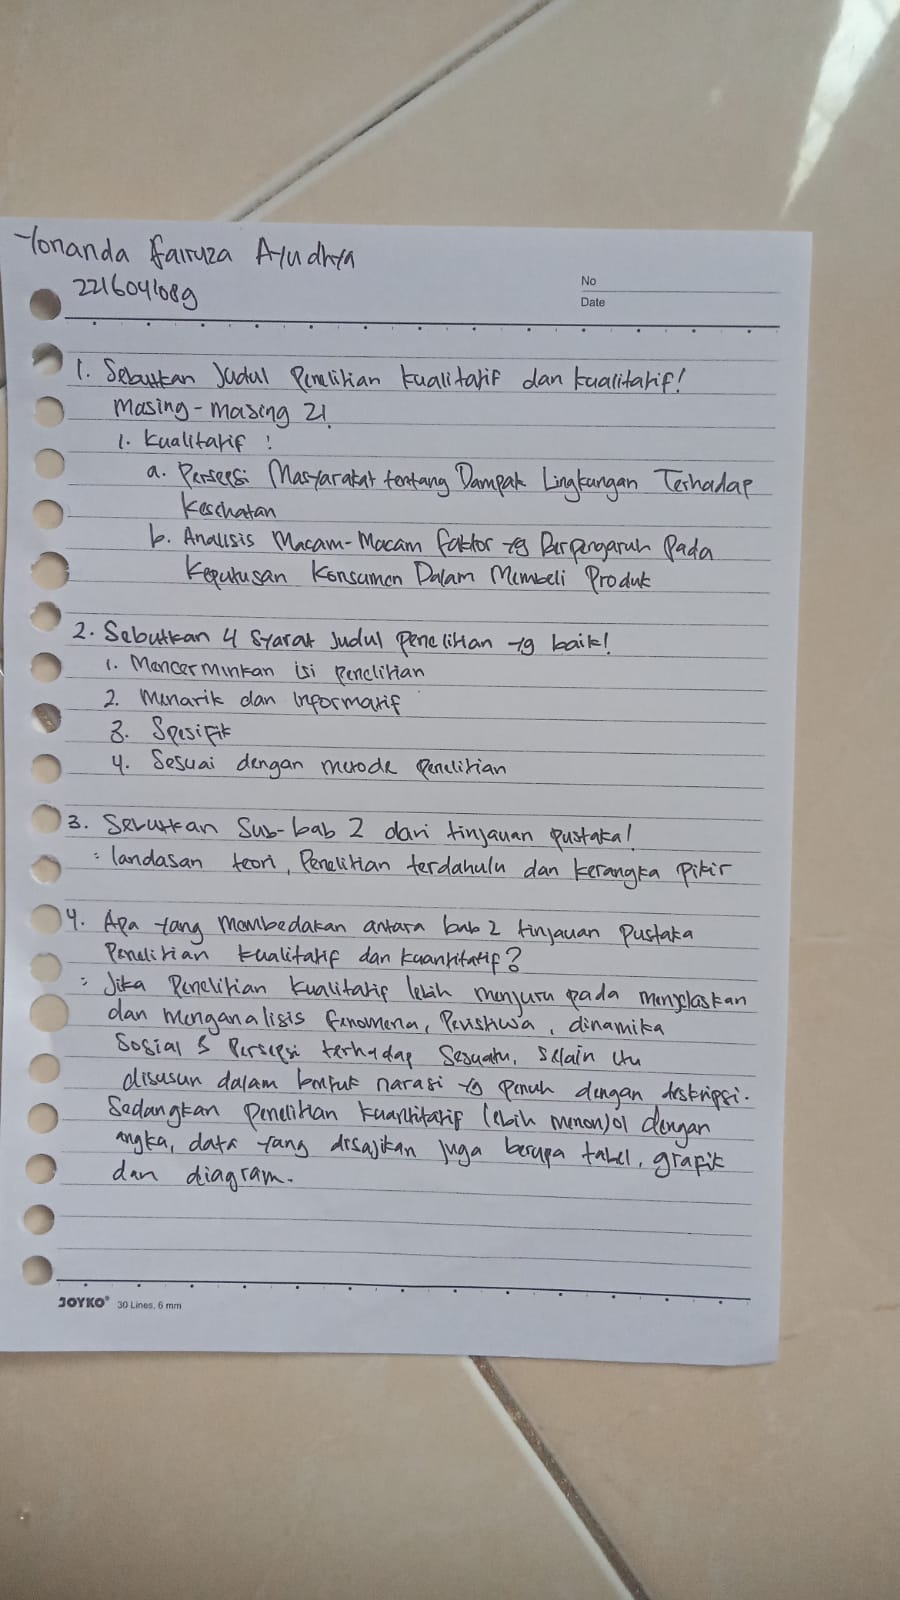 Yonanda Fairuza Ayudhya
2216041089
No
Date
1. Sebutkan Judul Penelitian kualitatif dan kualitatif!
Masing-masing 2!
1. Kualitatif :
a. Persepsi Masyarakat tentang Dampak Lingkungan Terhadap
Kesehatan
b. Analisis Macam-Macam Faktor yg Berpengaruh Pada
Keputusan Konsumen Dalam Membeli Produk
2. Sebutkan 4 syarat Judul penelitian yg baik!
1. Mencerminkan isi penelitian
2. Menarik dan Informatif
3. Spesifik
4. Sesuai dengan metode penelitian
3. Sebutkan Sub-bab 2 dari tinjauan pustaka!
: landasan teori, Penelitian terdahulu dan kerangka pikir
4. Apa yang membedakan antara bab 2 tinjauan Pustaka
Penelitian kualitatif dan kuantitatif?
: Jika Penelitian kualitatif lebih menjuru pada menjelaskan
dan menganalisis fenomena, Peristiwa, dinamika
Sosial & Persepsi terhadap Sesuatu, selain itu
disusun dalam bentuk narasi yg penuh dengan deskripsi.
Sedangkan penelitian kuantitatif lebih menonjol dengan
angka, data yang disajikan juga berupa tabel, grafik
dan diagram.
JOYKO® 30 Lines, 6 mm